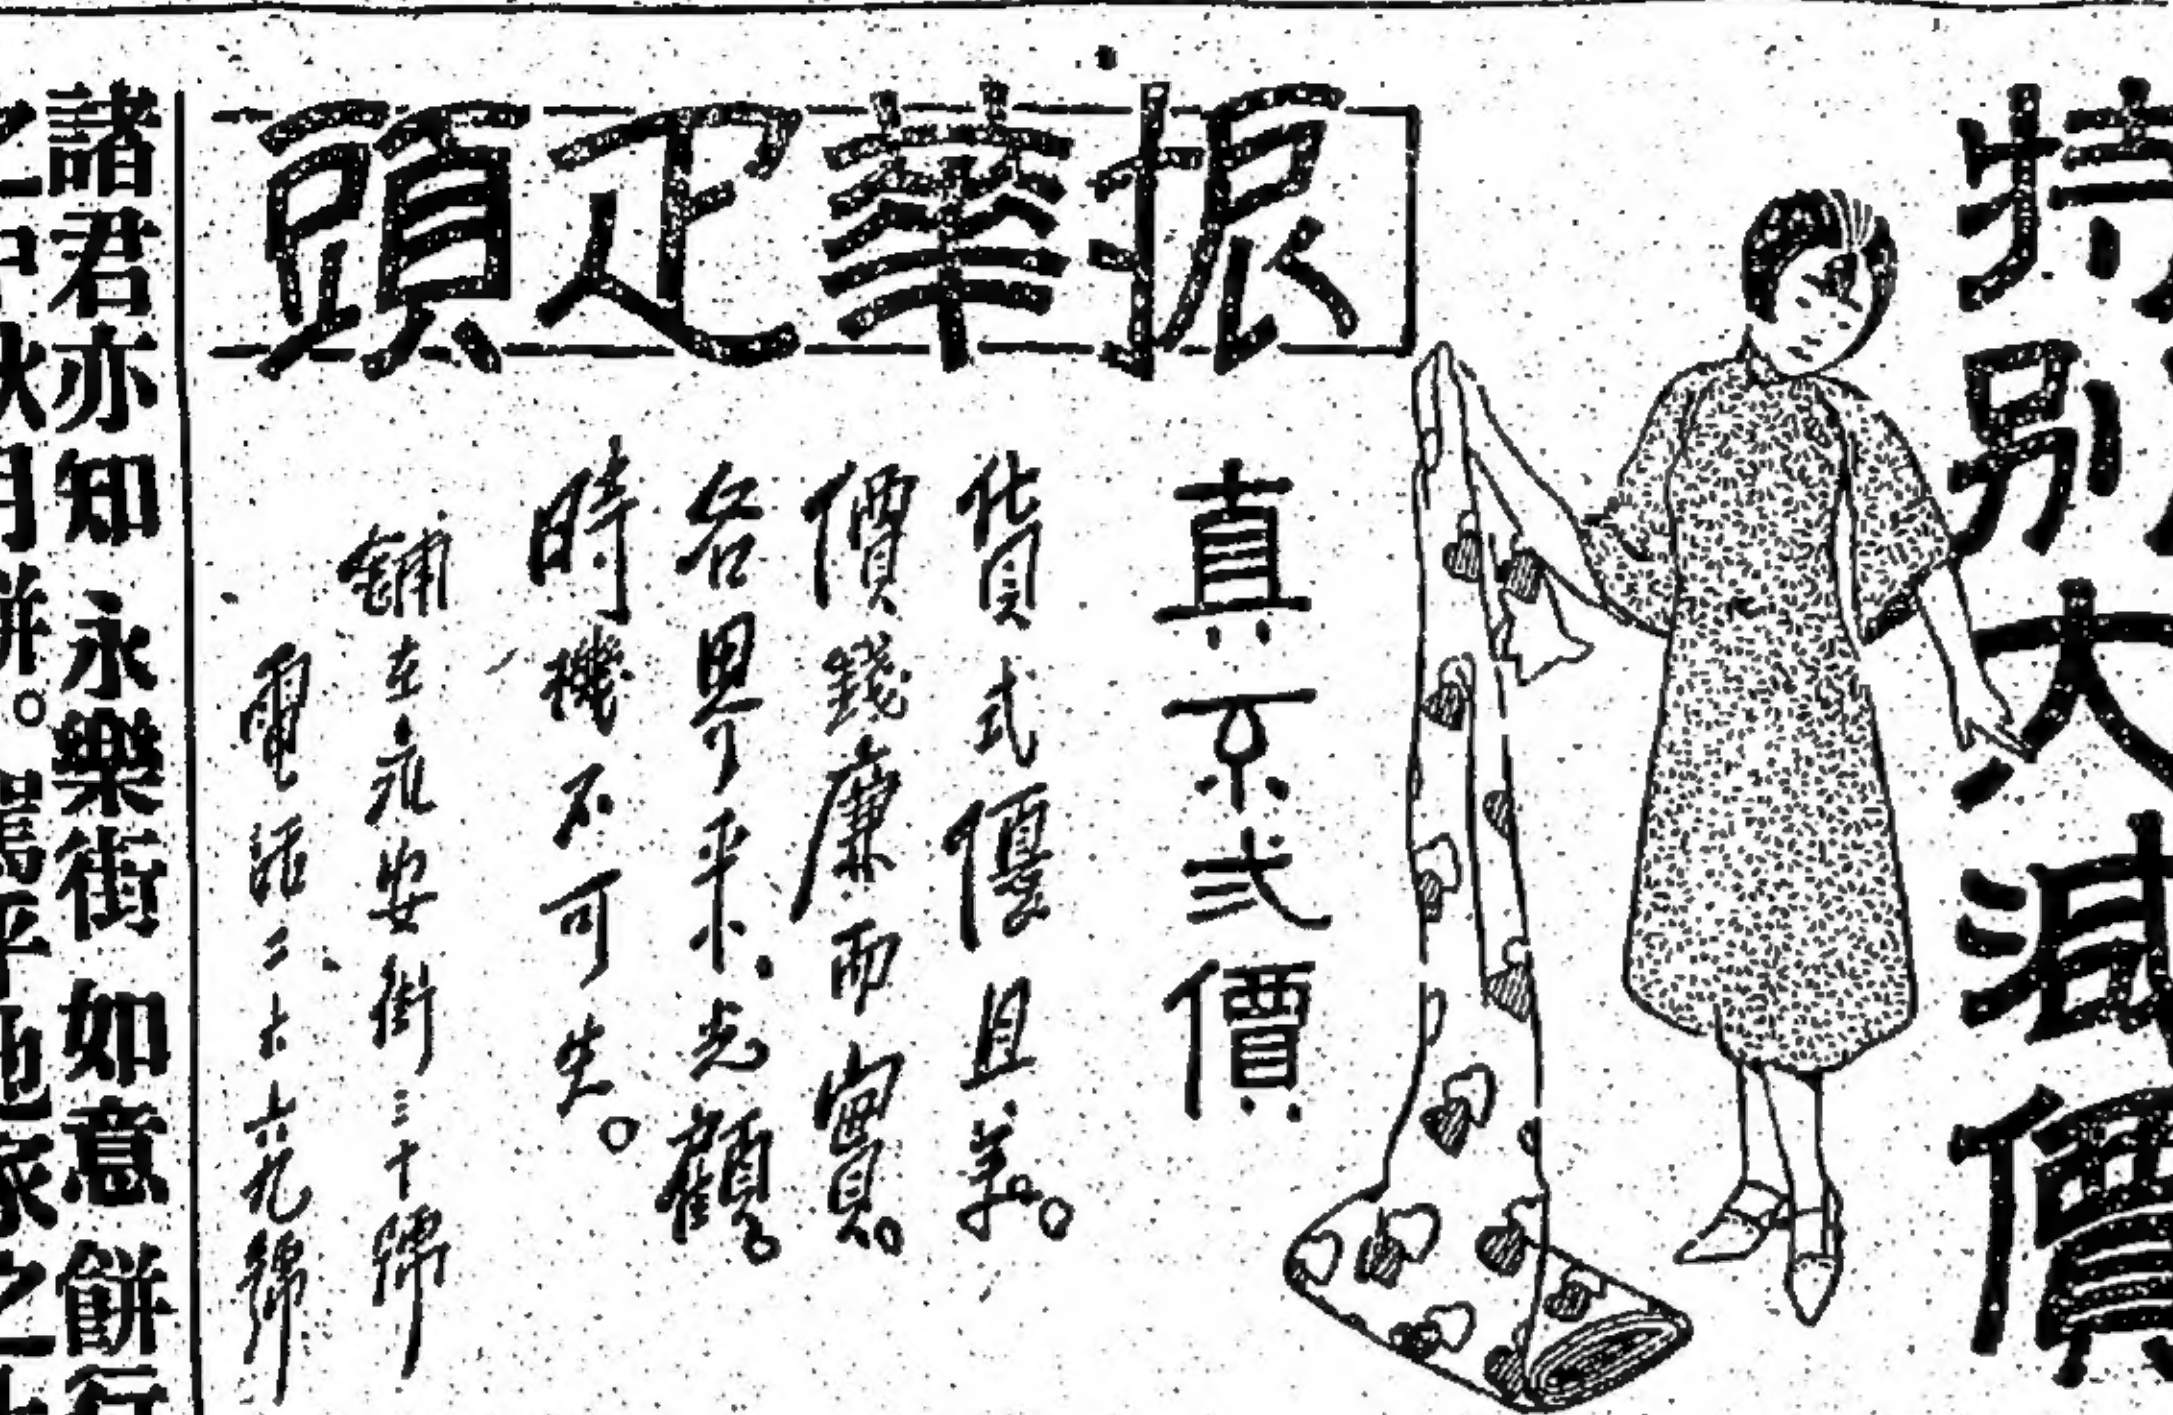 特別大減價
振華疋頭
真不弍價
貨式優且美。
價錢廉而實。
各界來光顧。
時機不可失。
舖在永安街三十號
電話二六六九號
諸君亦知 永樂街 如意 餅行
之中秋月餅。